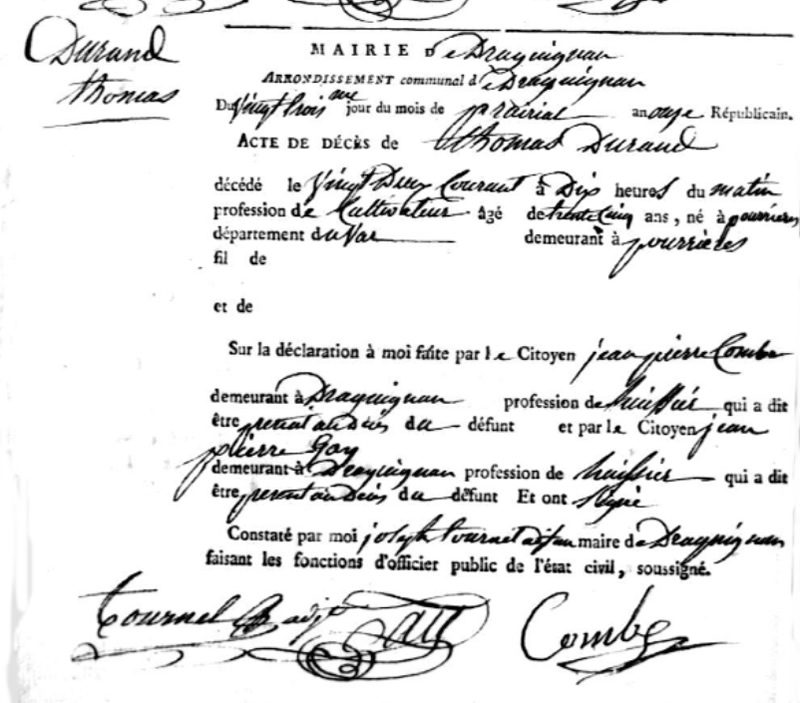 Durand
thomas
MAIRIE De Draguignan
ARRONDISSEMENT communal de Draguignan
Du vingt trois me jour du mois de prairial an onze Républicain.
ACTE DE DÉCÈS de thomas Durand
décédé le vingt Deux Courant à Dix heures du matin
profession de Cultivateur âgé de trente Cinq ans, né à pourrieres
département du Var demeurant à pourrieres
fil de
et de
Sur la déclaration à moi faite par le Citoyen jean pierre Combe
demeurant à Draguignan profession de huissier qui a dit
être présent au décès du défunt et par le Citoyen jean
pierre Gay
demeurant à Draguignan profession de huissier qui a dit
être présent au décès du défunt Et ont signé
Constaté par moi joseph tournel maire de Draguignan
faisant les fonctions d'officier public de l'état civil, soussigné.
tournel adjt Combe